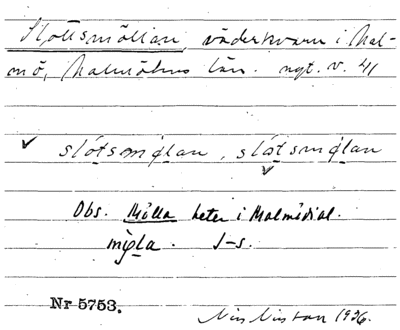 Slottsmöllan, väderkvarn i Mal-
mö, Malmöhus län. nyt. v. 41
✓ slåtsmölan, slåtsmölan
Obs. Mölla heter i Malmödial.
möla. J-s.
Nr 5753.
1936.